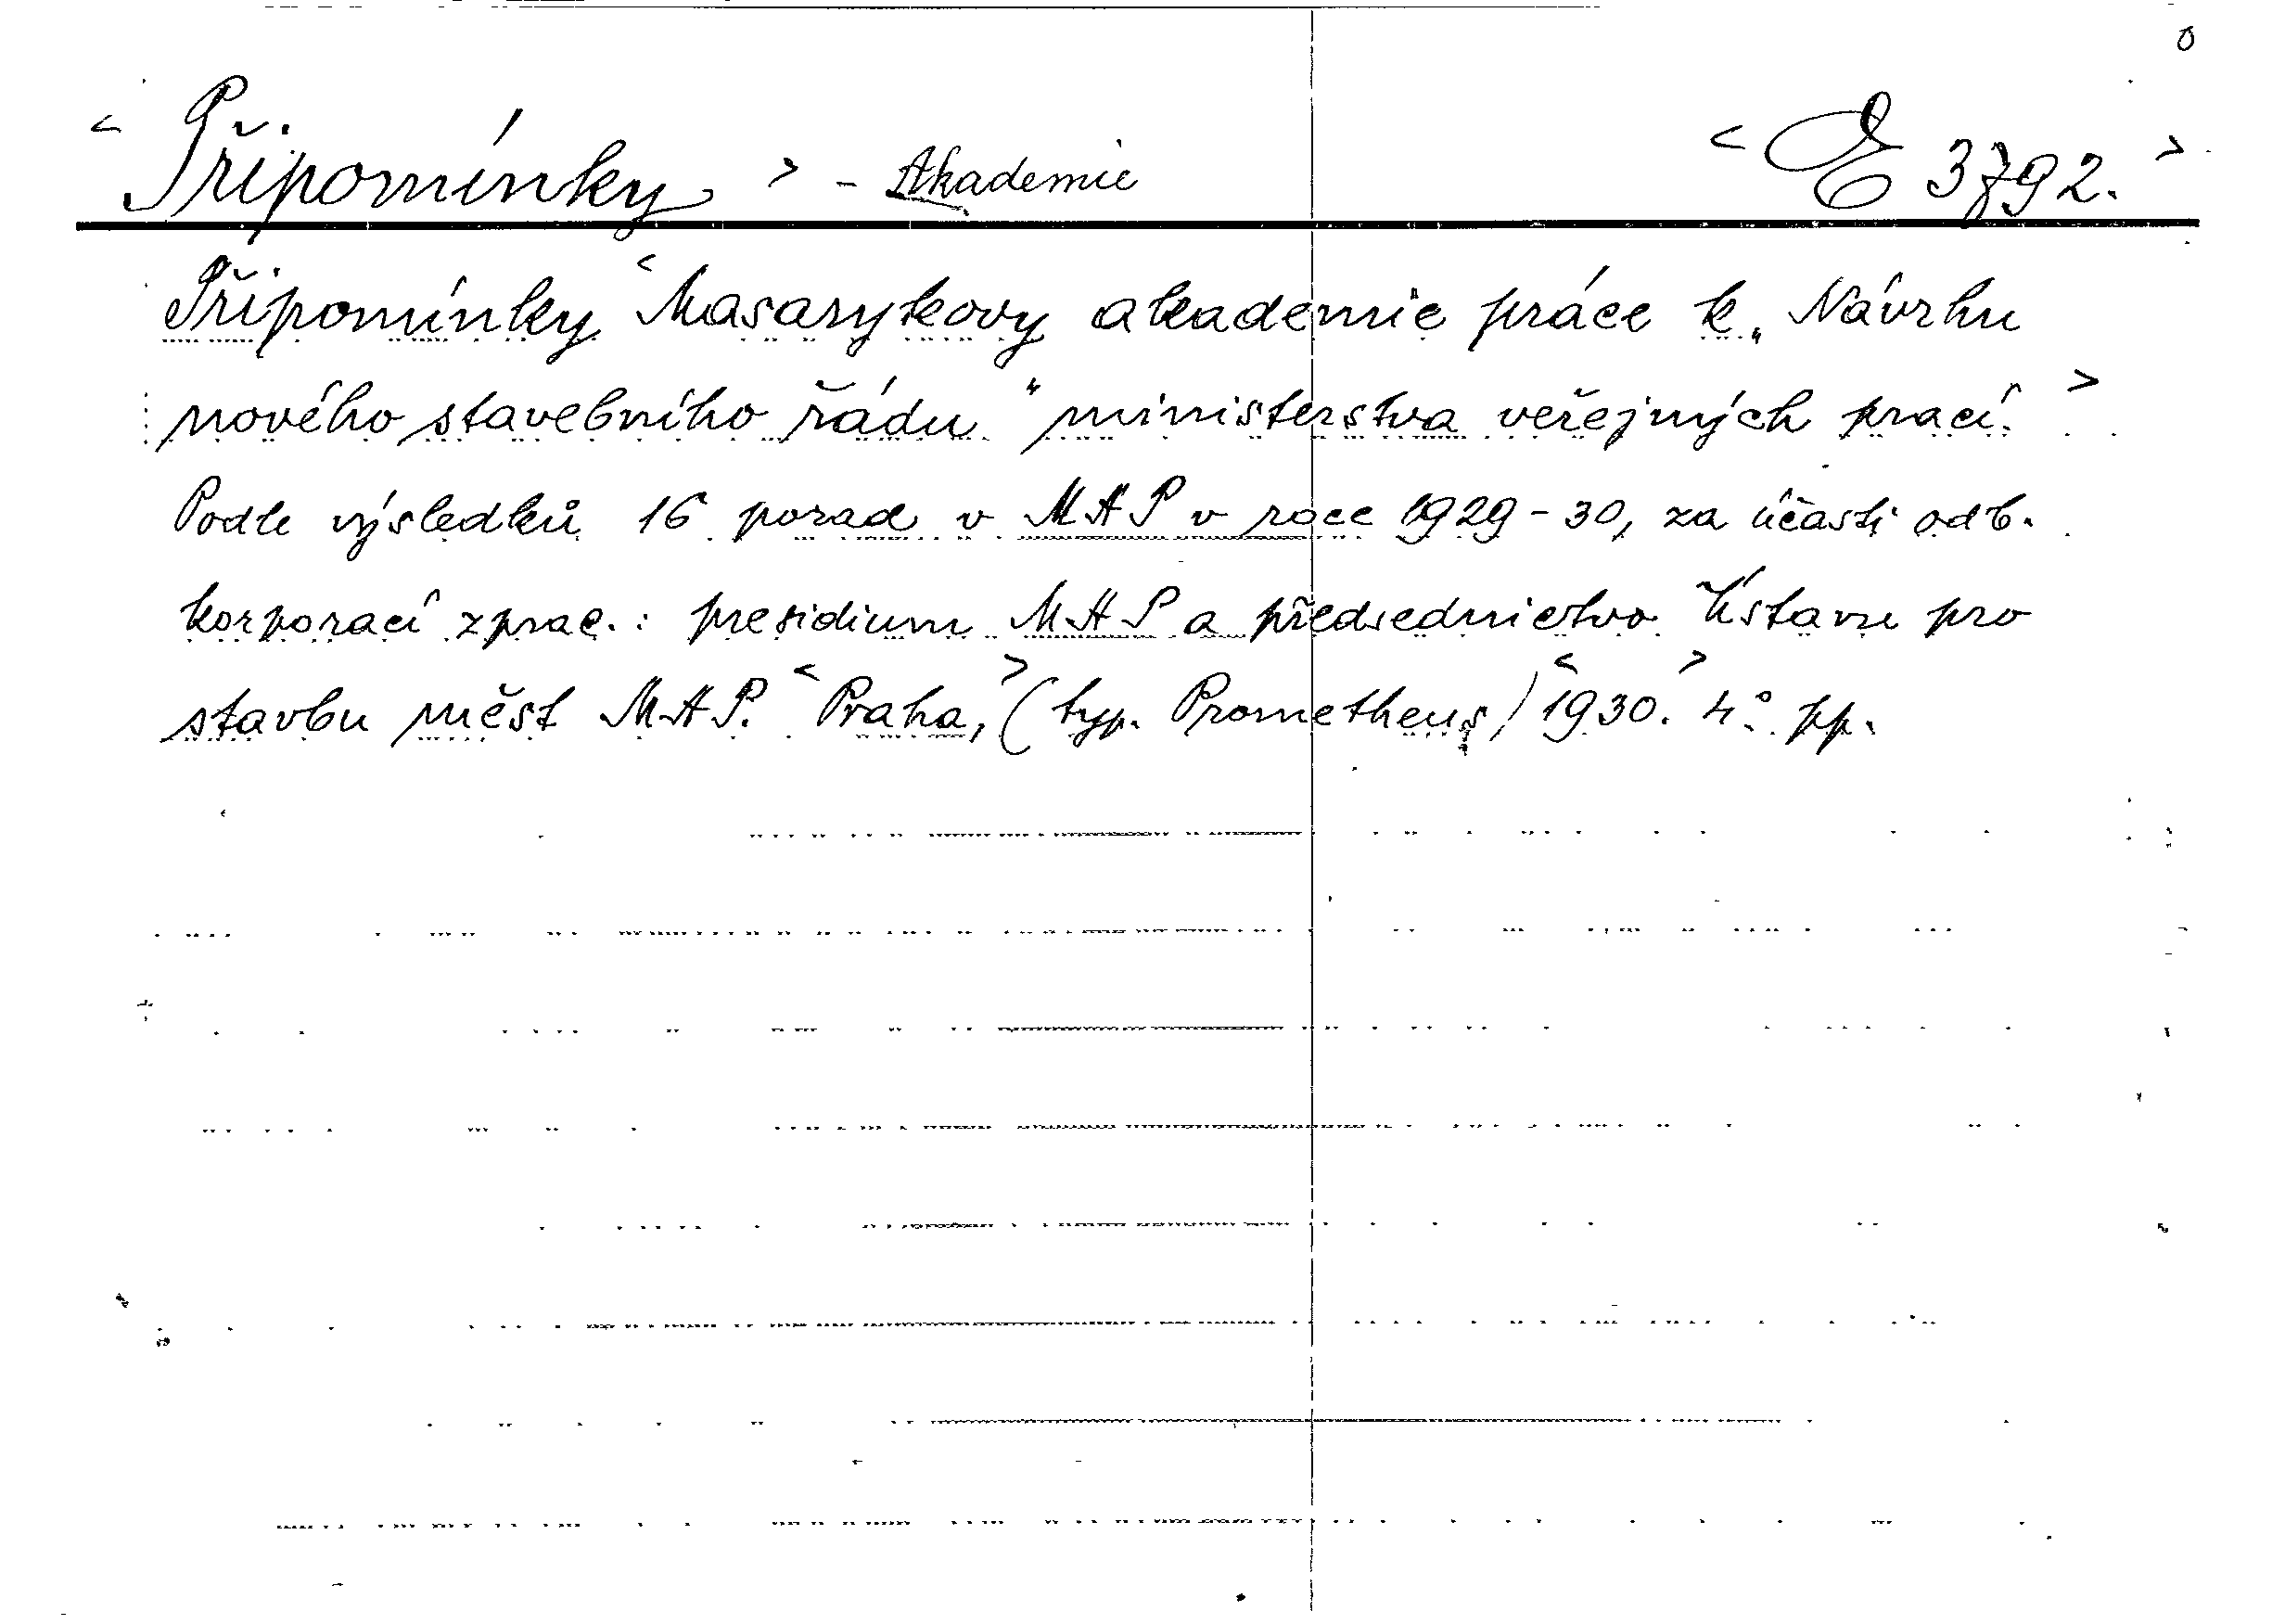 < Připomínky > - Akademie < E 3792. >
Připomínky < Masarykovy akademie práce k „Návrhu
nového stavebního řádu“ ministerstva veřejných prací. >
Podle výsledků 16 porad v MAP v roce 1929-30, za účasti odb.
korporací zprac.: presidium MAP a předsednictvo Ústavu pro
stavbu měst MAP. < Praha, > (typ. Prometheus) < 1930. > 4° pp.